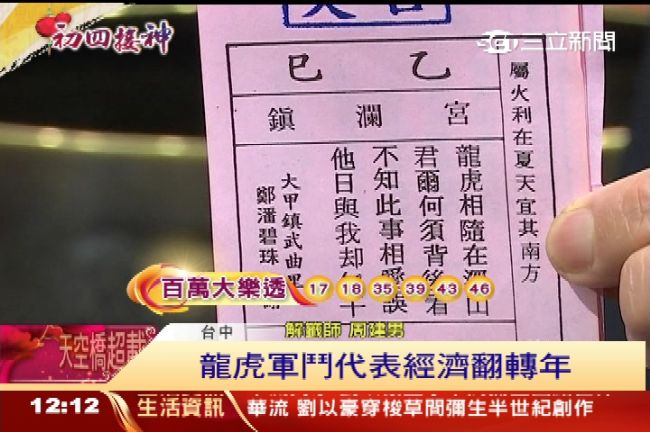 初四接神
三立新聞
大吉
乙巳
鎮瀾宮
屬火利在夏天宜其南方
龍虎相隨在深山
君爾何須背後看
不知此事相愛誤
他日與我却
大甲鎮武曲里
鄭潘碧珠
百萬大樂透 17 18 35 39 43 46
台中
解籤師 周建男
天空橋超載
龍虎軍鬥代表經濟翻轉年
12:12 生活資訊 華流 劉以豪穿梭草間彌生半世紀創作